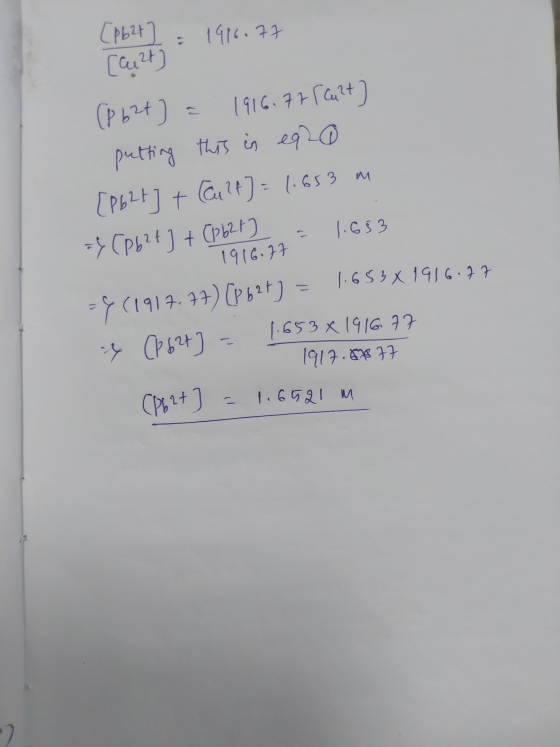 [Pb2+] / [Cu2+] = 1916.77
[Pb2+] = 1916.77 [Cu2+]
putting this in eqn ①
[Pb2+] + [Cu2+] = 1.653 M
=> [Pb2+] + [Pb2+] / 1916.77 = 1.653
=> (1917.77) [Pb2+] = 1.653 x 1916.77
=> [Pb2+] = 1.653 x 1916.77 / 1917.77
[Pb2+] = 1.6521 M